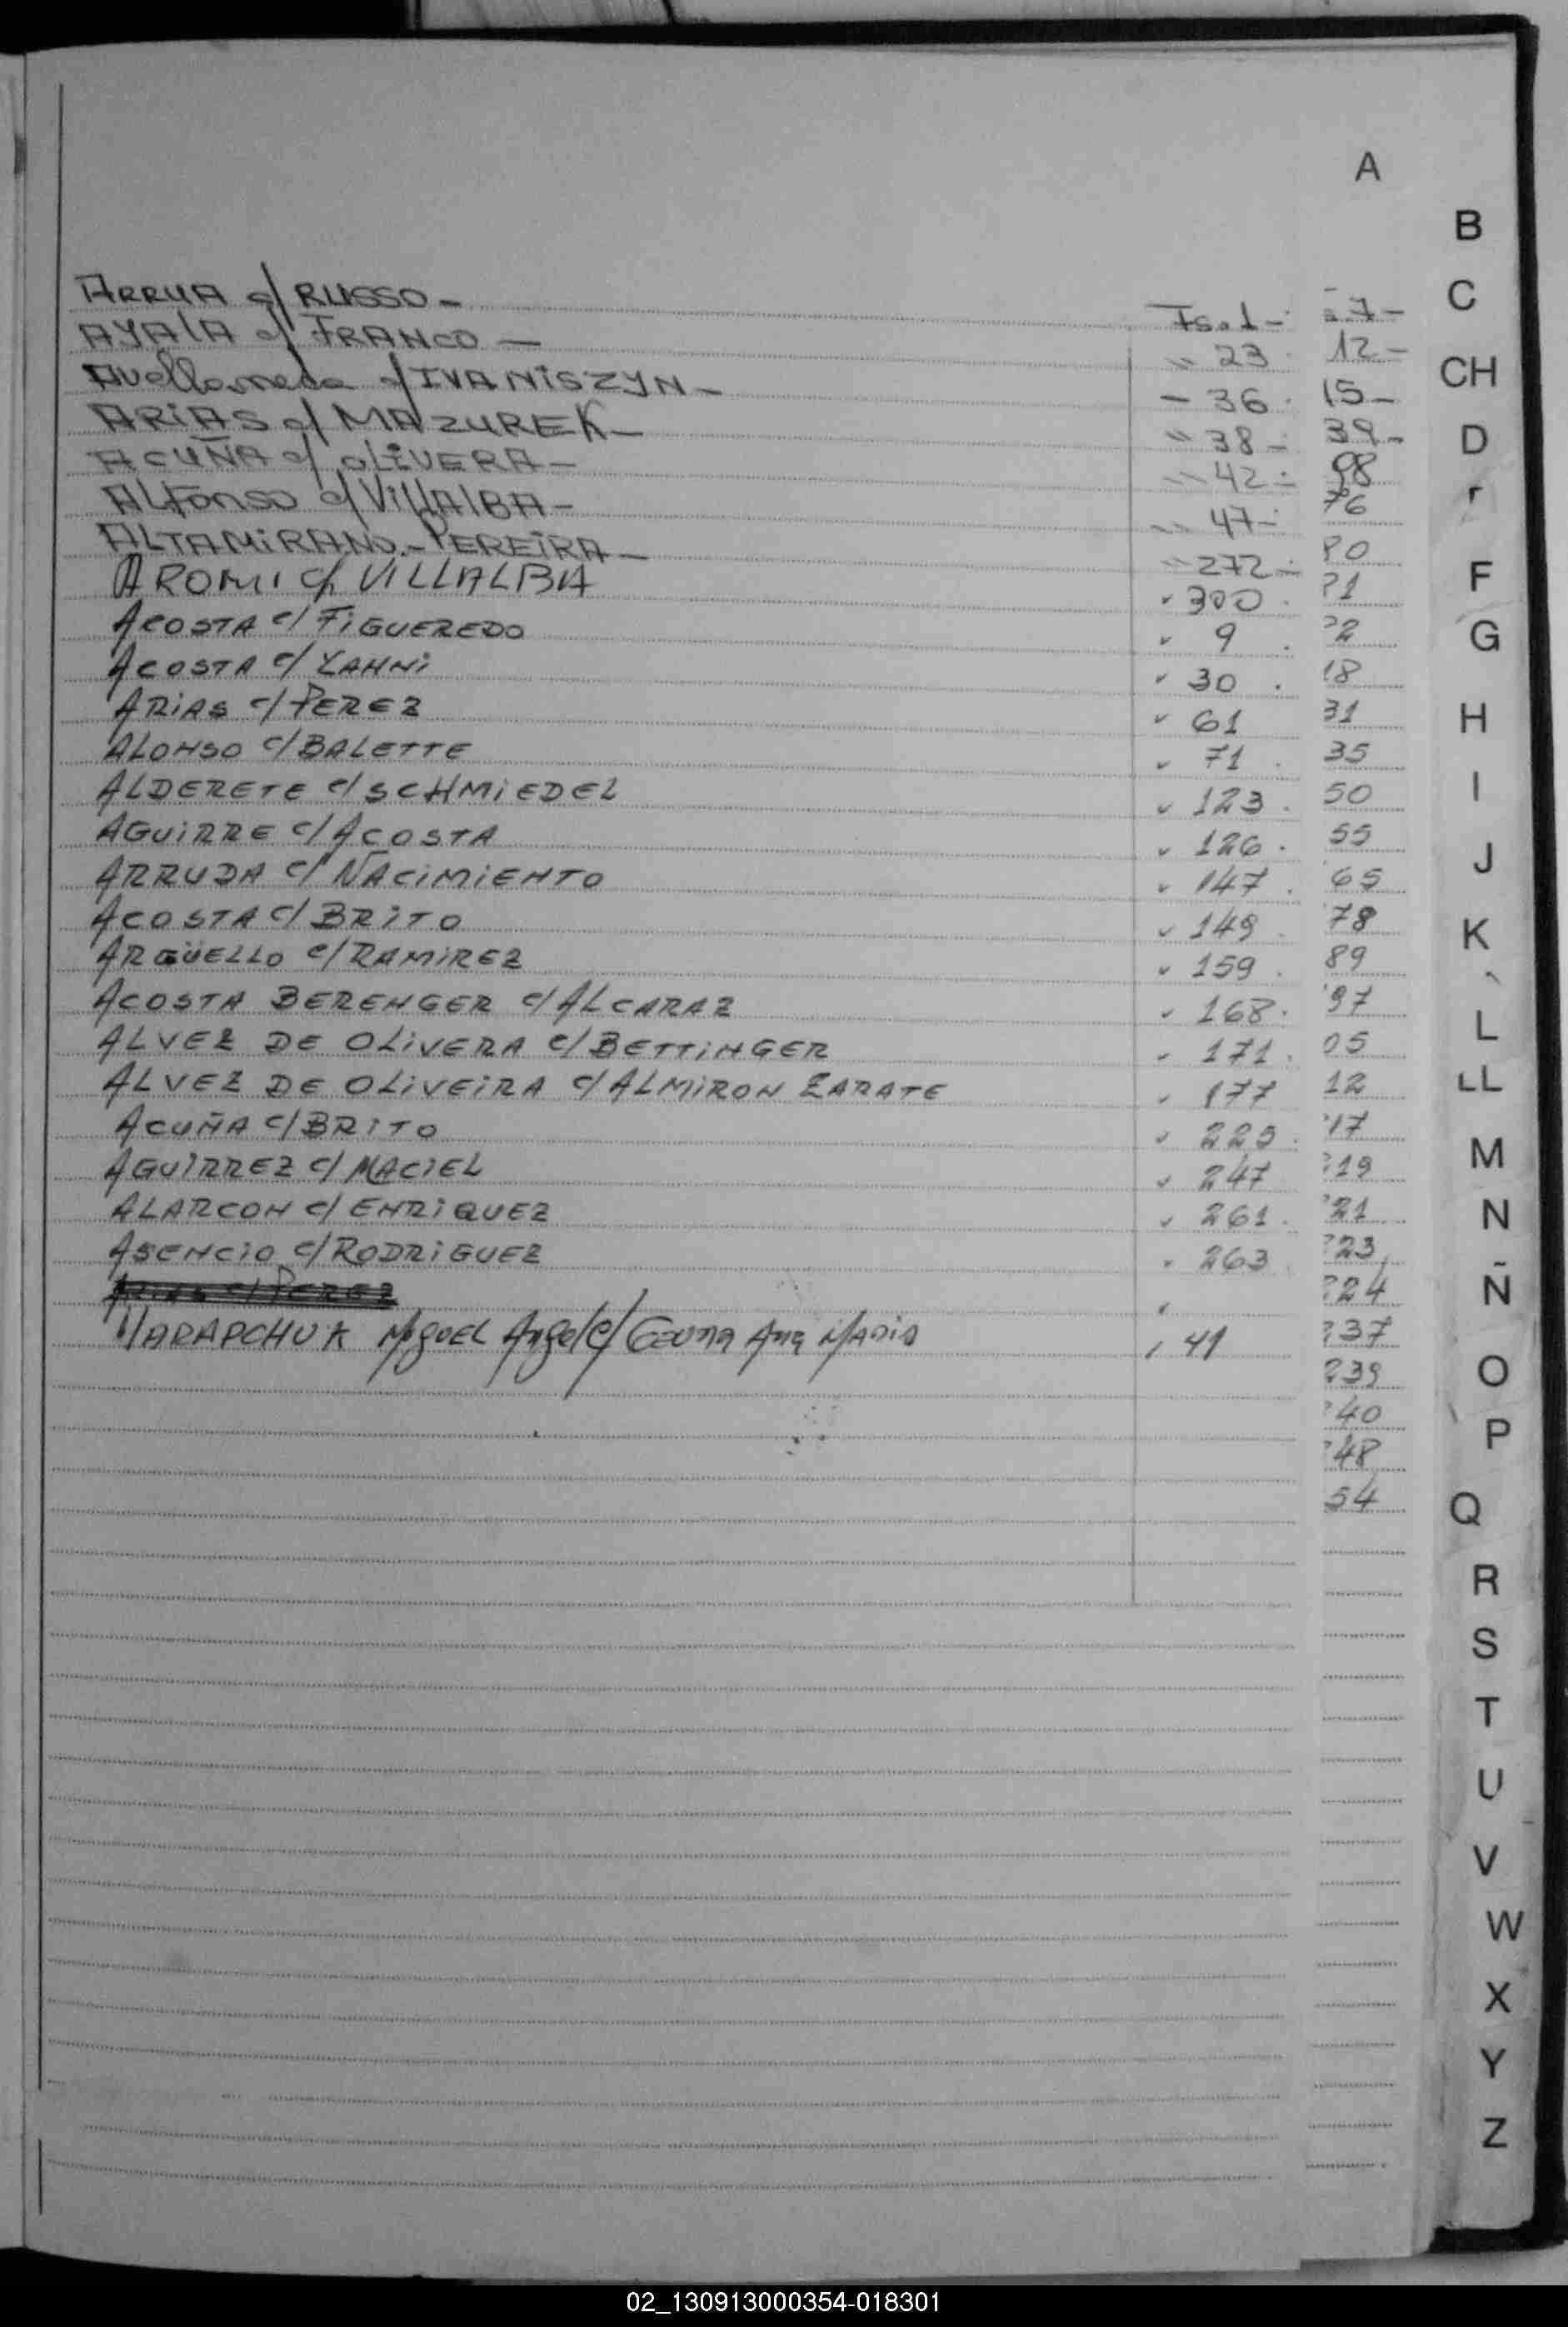 A
ARRUA c/ RUSSO - Fs. 1 -
AYALA c/ FRANCO - " 23
Avellaneda c/ IVANISZYN - - 36
ARIAS c/ MAZUREK - " 38 -
ACUÑA c/ OLIVERA - " 42 -
ALFONSO c/ VILLALBA - " 47 -
ALTAMIRANO - PEREIRA - " 272 -
AROMI c/ VILLALBA " 300
ACOSTA c/ FIGUEREDO " 9
ACOSTA c/ YAHNI " 30
ARIAS c/ PEREZ " 61
ALONSO c/ BALETTE " 71
ALDERETE c/ SCHMIEDEL " 123
AGUIRRE c/ ACOSTA " 126
ARRUDA c/ NACIMIENTO " 147
ACOSTA c/ BRITO " 149
ARGÜELLO c/ RAMIREZ " 159
ACOSTA BERENGER c/ ALCARAZ " 168
ALVEZ DE OLIVERA c/ BETTINGER " 171
ALVEZ DE OLIVEIRA c/ ALMIRON ZARATE " 177
ACUÑA c/ BRITO " 225
AGUIRREZ c/ MACIEL " 247
ALARCON c/ ENRIQUEZ " 261
ASENCIO c/ RODRIGUEZ " 263
ARIAS c/ PEREZ
HARAPCHUK Miguel Angel c/ Ana MARIA 41
7 -
12 -
15 -
39 -
98
76
80
21
22
18
31
35
50
55
65
78
89
97
05
12
17
19
21
23
24
37
39
40
48
54
B
C
CH
D
F
G
H
I
J
K
L
LL
M
N
Ñ
O
P
Q
R
S
T
U
V
W
X
Y
Z
02_130913000354-018301